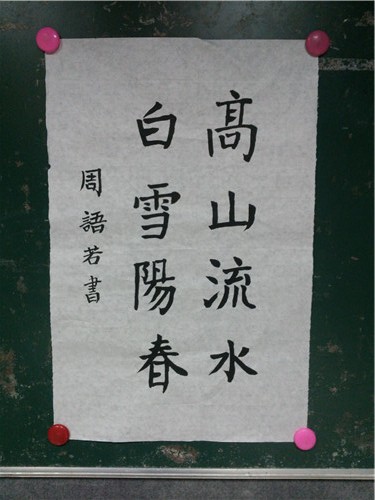 髙山流水
白雪陽春
周語若書